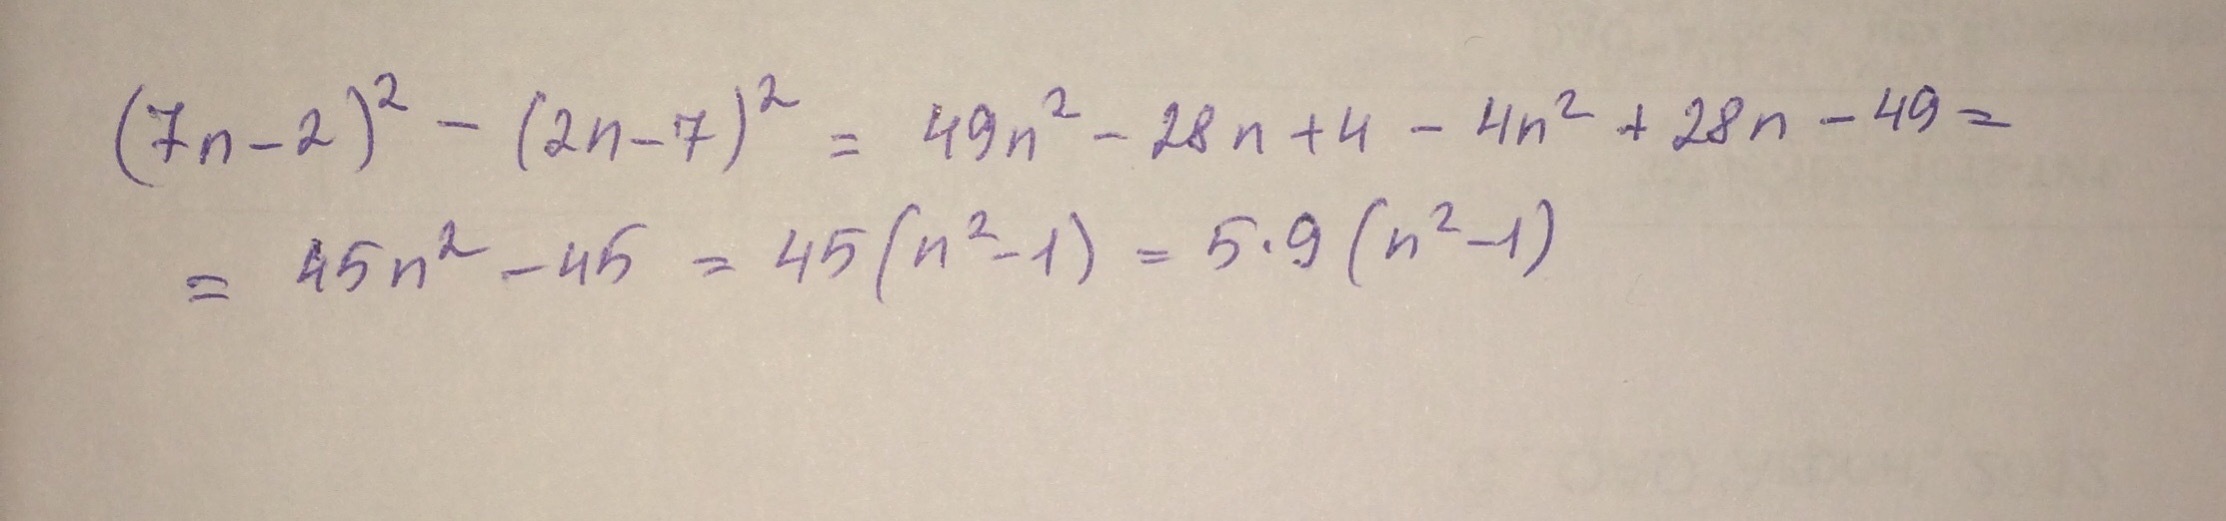 (7n-2)² - (2n-7)² = 49n² - 28n + 4 - 4n² + 28n - 49 =
= 45n² - 45 = 45(n²-1) = 5·9(n²-1)